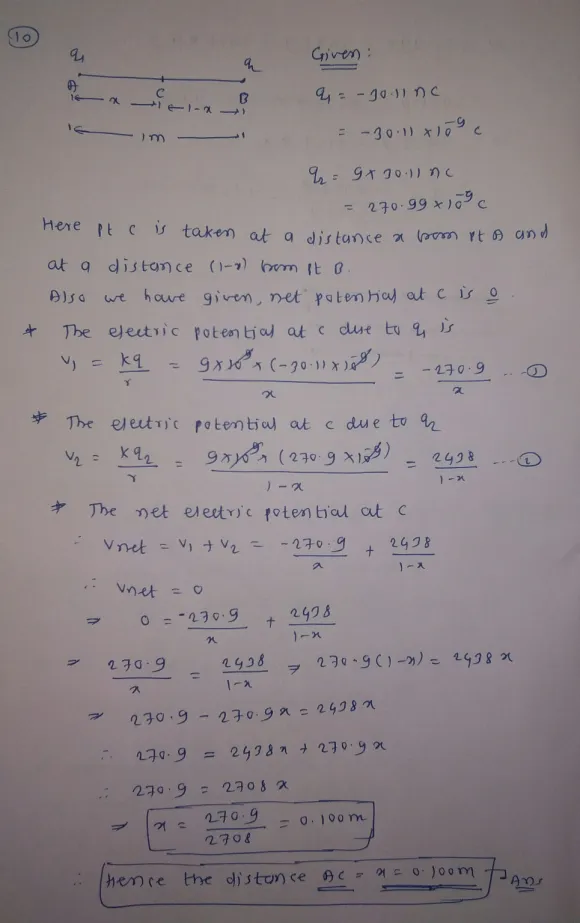 10
q1 q2
Given:
A C B
x 1-x
1m
q1 = -30.11 nC
= -30.11 × 10^-9 C
q2 = 9 × 30.11 nC
= 270.99 × 10^-9 C
Here pt C is taken at a distance x from pt A and
at a distance (1-x) from pt B.
Also we have given, net potential at C is 0.
* The electric potential at C due to q1 is
V1 = kq/r = 9×10^9 × (-30.11×10^-9)/x = -270.9/x ---①
* The electric potential at C due to q2
V2 = kq2/r = 9×10^9 × (270.9×10^-9)/1-x = 2438/1-x ---②
* The net electric potential at C
∴ Vnet = V1 + V2 = -270.9/x + 2438/1-x
∴ Vnet = 0
⇒ 0 = -270.9/x + 2438/1-x
⇒ 270.9/x = 2438/1-x ⇒ 270.9(1-x) = 2438x
⇒ 270.9 - 270.9x = 2438x
∴ 270.9 = 2438x + 270.9x
∴ 270.9 = 2708x
⇒ x = 270.9/2708 = 0.100m
∴ hence the distance AC = x = 0.100m → Ans